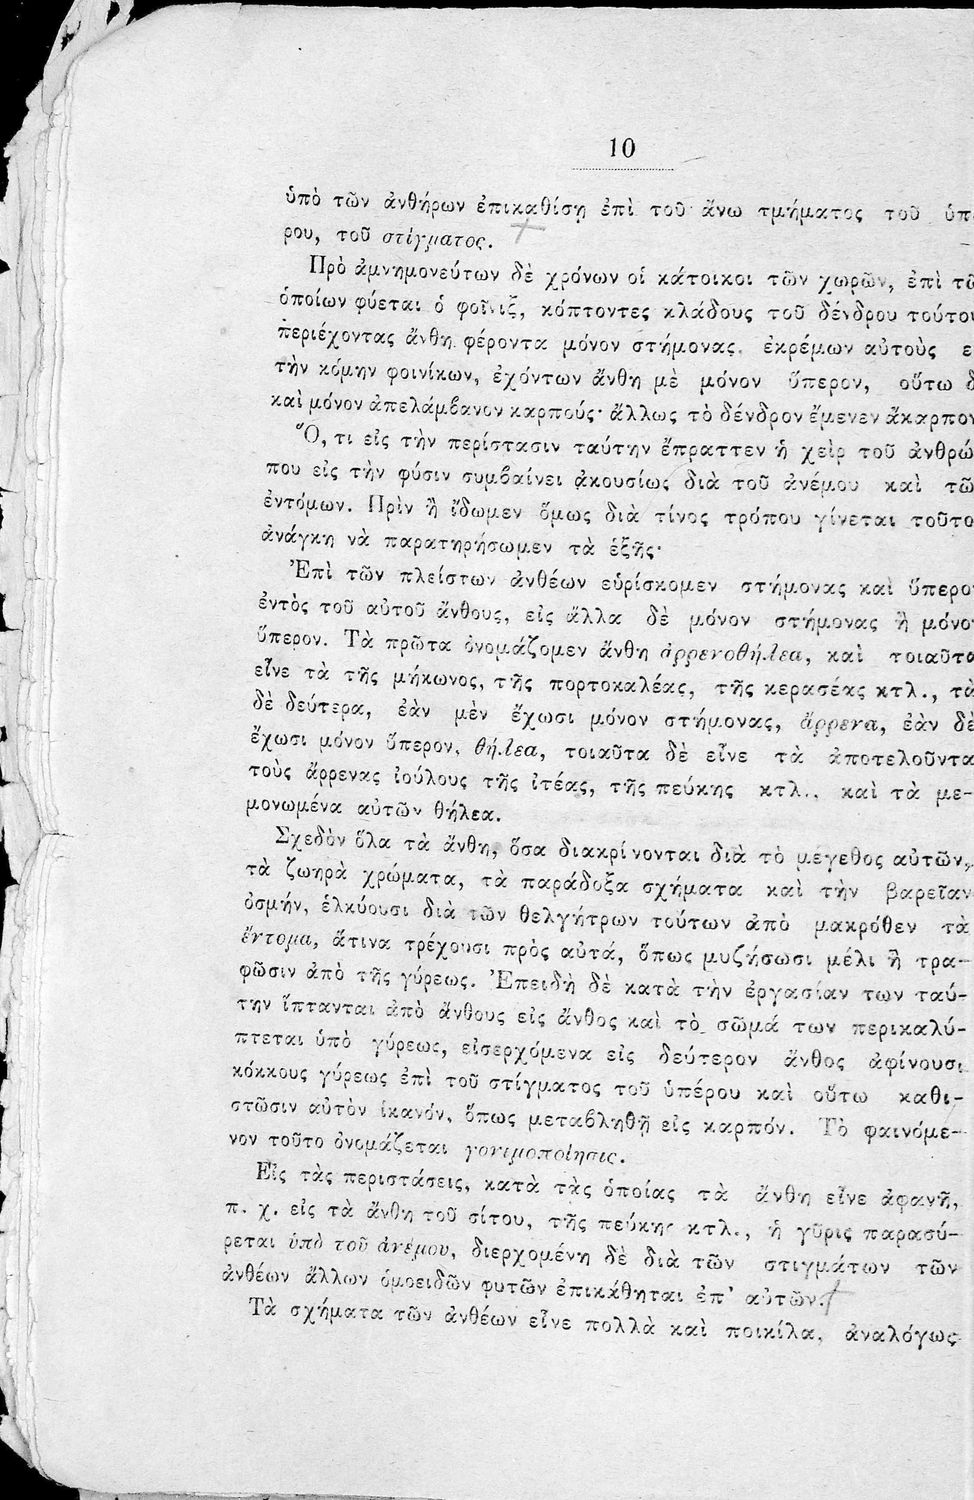 10
ὑπὸ τῶν ἀνθήρων ἐπικαθίσῃ ἐπὶ τοῦ ἄνω τμήματος τοῦ ὑπέ
ρου, τοῦ στίγματος.
Πρὸ ἀμνημονεύτων δὲ χρόνων οἱ κάτοικοι τῶν χωρῶν, ἐπὶ τῶ
ὁποίων φύεται ὁ φοῖνιξ, κόπτοντες κλάδους τοῦ δένδρου τούτου
περιέχοντας ἄνθη φέροντα μόνον στήμονας, ἐκρέμων αὐτοὺς ε
τὴν κόμην φοινίκων, ἐχόντων ἄνθη μὲ μόνον ὕπερον, οὕτω δ
καὶ μόνον ἀπελάμβανον καρπούς· ἄλλως τὸ δένδρον ἔμενεν ἄκαρπον
Ὅ, τι εἰς τὴν περίστασιν ταύτην ἔπραττεν ἡ χεὶρ τοῦ ἀνθρώ
που εἰς τὴν φύσιν συμβαίνει ἀκουσίως διὰ τοῦ ἀνέμου καὶ τῶ
ἐντόμων. Πρὶν ἢ ἴδωμεν ὅμως διὰ τίνος τρόπου γίνεται τοῦτο
ἀνάγκη νὰ παρατηρήσωμεν τὰ ἑξῆς·
Ἐπὶ τῶν πλείστων ἀνθέων εὑρίσκομεν στήμονας καὶ ὕπερον
ἐντὸς τοῦ αὐτοῦ ἄνθους, εἰς ἄλλα δὲ μόνον στήμονας ἢ μόνον
ὕπερον. Τὰ πρῶτα ὀνομάζομεν ἄνθη ἀρρενοθήλεα, καὶ τοιαῦτα
εἶνε τὰ τῆς μήκωνος, τῆς πορτοκαλέας, τῆς κερασέας κτλ., τὰ
δὲ δεύτερα, ἐὰν μὲν ἔχωσι μόνον στήμονας, ἄρρενα, ἐὰν δὲ
ἔχωσι μόνον ὕπερον, θήλεα, τοιαῦτα δὲ εἶνε τὰ ἀποτελοῦντα
τοὺς ἄρρενας ἰούλους τῆς ἰτέας, τῆς πεύκης κτλ., καὶ τὰ με-
μονωμένα αὐτῶν θήλεα.
Σχεδὸν ὅλα τὰ ἄνθη, ὅσα διακρίνονται διὰ τὸ μέγεθος αὐτῶν,
τὰ ζωηρὰ χρώματα, τὰ παράδοξα σχήματα καὶ τὴν βαρεῖαν
ὀσμήν, ἑλκύουσι διὰ τῶν θελγήτρων τούτων ἀπὸ μακρόθεν τὰ
ἔντομα, ἅτινα τρέχουσι πρὸς αὐτά, ὅπως μυζήσωσι μέλι ἢ τρα-
φῶσιν ἀπὸ τῆς γύρεως. Ἐπειδὴ δὲ κατὰ τὴν ἐργασίαν των ταύ-
την ἵπτανται ἀπὸ ἄνθους εἰς ἄνθος καὶ τὸ σῶμά των περικαλύ-
πτεται ὑπὸ γύρεως, εἰσερχόμενα εἰς δεύτερον ἄνθος ἀφίνουσι
κόκκους γύρεως ἐπὶ τοῦ στίγματος τοῦ ὑπέρου καὶ οὕτω καθι-
στῶσιν αὐτὸν ἱκανόν, ὅπως μεταβληθῇ εἰς καρπόν. Τὸ φαινόμε-
νον τοῦτο ὀνομάζεται γονιμοποίησις.
Εἰς τὰς περιστάσεις, κατὰ τὰς ὁποίας τὰ ἄνθη εἶνε ἀφανῆ,
π. χ. εἰς τὰ ἄνθη τοῦ σίτου, τῆς πεύκης κτλ., ἡ γῦρις παρασύ-
ρεται ὑπὸ τοῦ ἀνέμου, διερχομένη δὲ διὰ τῶν στιγμάτων τῶν
ἀνθέων ἄλλων ὁμοειδῶν φυτῶν ἐπικάθηται ἐπ' αὐτῶν.
Τὰ σχήματα τῶν ἀνθέων εἶνε πολλὰ καὶ ποικίλα, ἀναλόγως